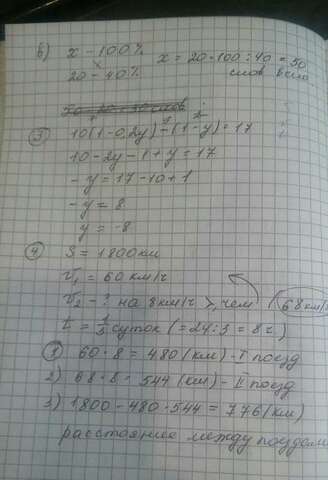 в) x - 100%
20 - 40%
x = 20 • 100 : 40 = 50
слов всего
50 - 20 = 30 слов
③ 10(1-0,2y) - (1-y) = 17
10 - 2y - 1 + y = 17
- y = 17 - 10 + 1
- y = 8
y = -8
④ S = 1800 км
V₁ = 60 км/ч
V₂ - ? на 8 км/ч >, чем (68 км/ч
t = 1/3 суток (= 24 : 3 = 8 ч.)
1) 60 • 8 = 480 (км) - I поезд
2) 68 • 8 = 544 (км) - II поезд
3) 1800 - 480 - 544 = 776 (км)
расстояние между поездами